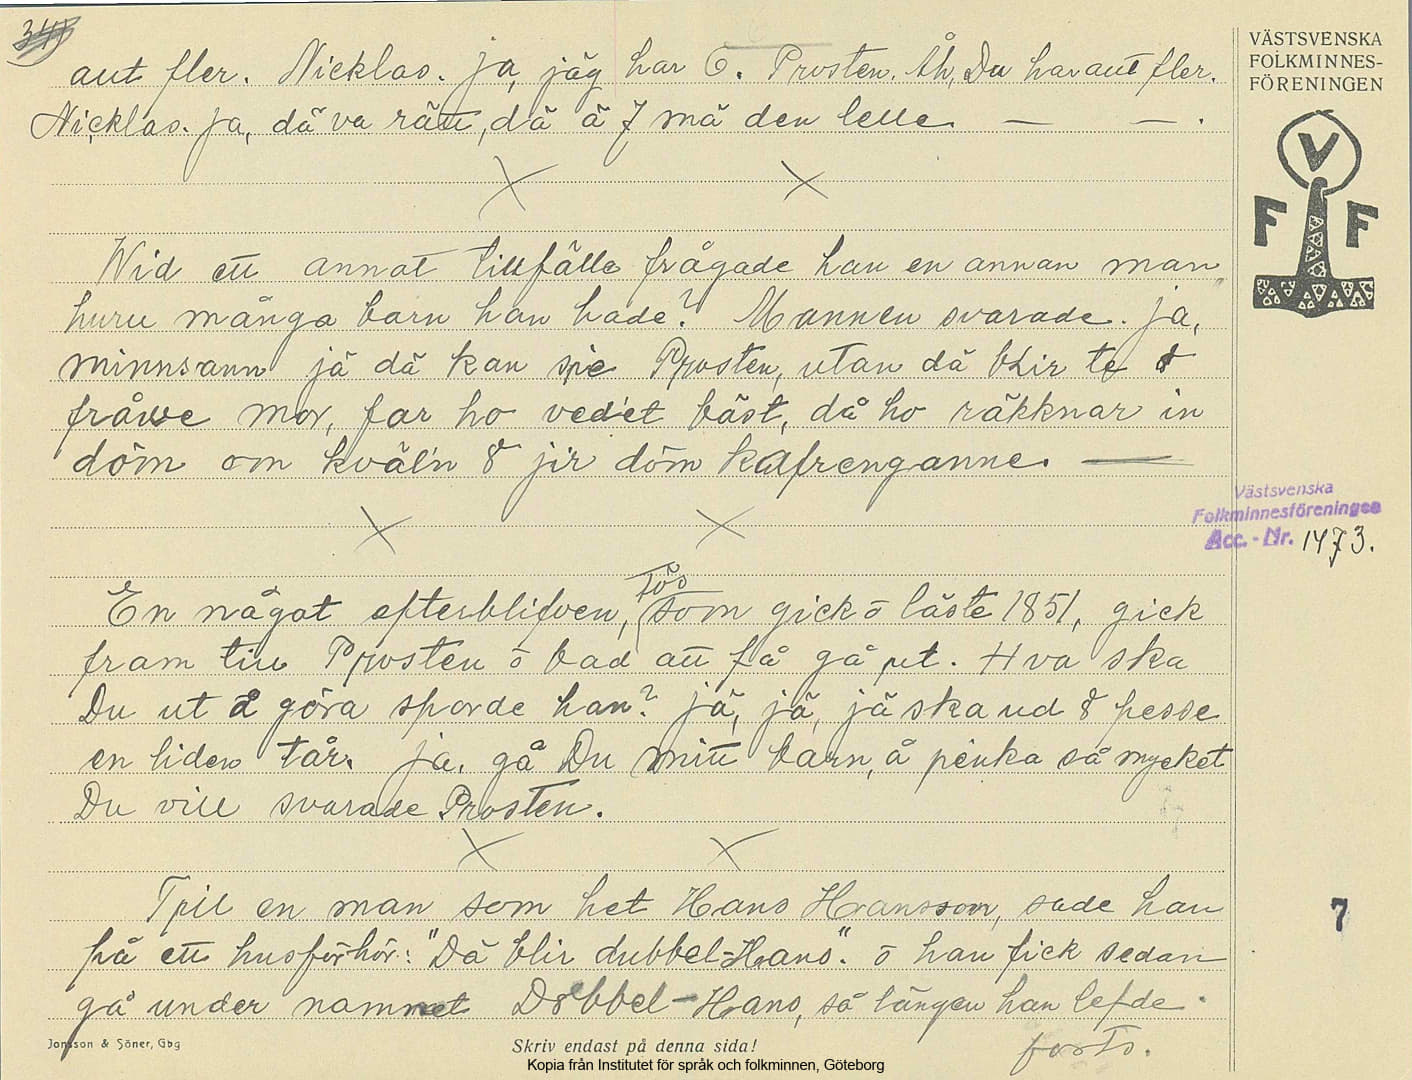 341
VÄSTSVENSKA
FOLKMINNES-
FÖRENINGEN
V
F F
aut fler. Nicklas. ja, jäg har 6. Prosten. Åh, Du har aut fler.
Nicklas. ja, dä va rätt, dä ä 7 mä den lelle. — — .
Wid ett annat tillfälle frågade han en annan man
huru många barn han hade? Mannen svarade. ja,
minnsann jä dä kan sie Prosten, utan dä blir te å
fråwe mor, far ho ved'et bäst, då ho räkknar in
döm om kväl'n å jir döm kafrenganne. —
Västsvenska
Folkminnesföreningen
Acc. - Nr. 1473.
En något efterblifven, tös som gick ö läste 1851, gick
fram till Prosten ö bad att få gå ut. Hva ska
Du ut å göra sporde han? jä, jä, jä ska ud å pesse
en liden tår. ja, gå Du mitt barn, å pinka så mycket
Du vill svarade Prosten.
Till en man som het Hans Hansson, sade han
på ett husförhör: "Dä blir dubbel-Hans". ö han fick sedan
gå under nammet Dobbel-Hans, så längen han lefde.
forts.
7
Jonsson & Söner, Gbg
Skriv endast på denna sida!
Kopia från Institutet för språk och folkminnen, Göteborg